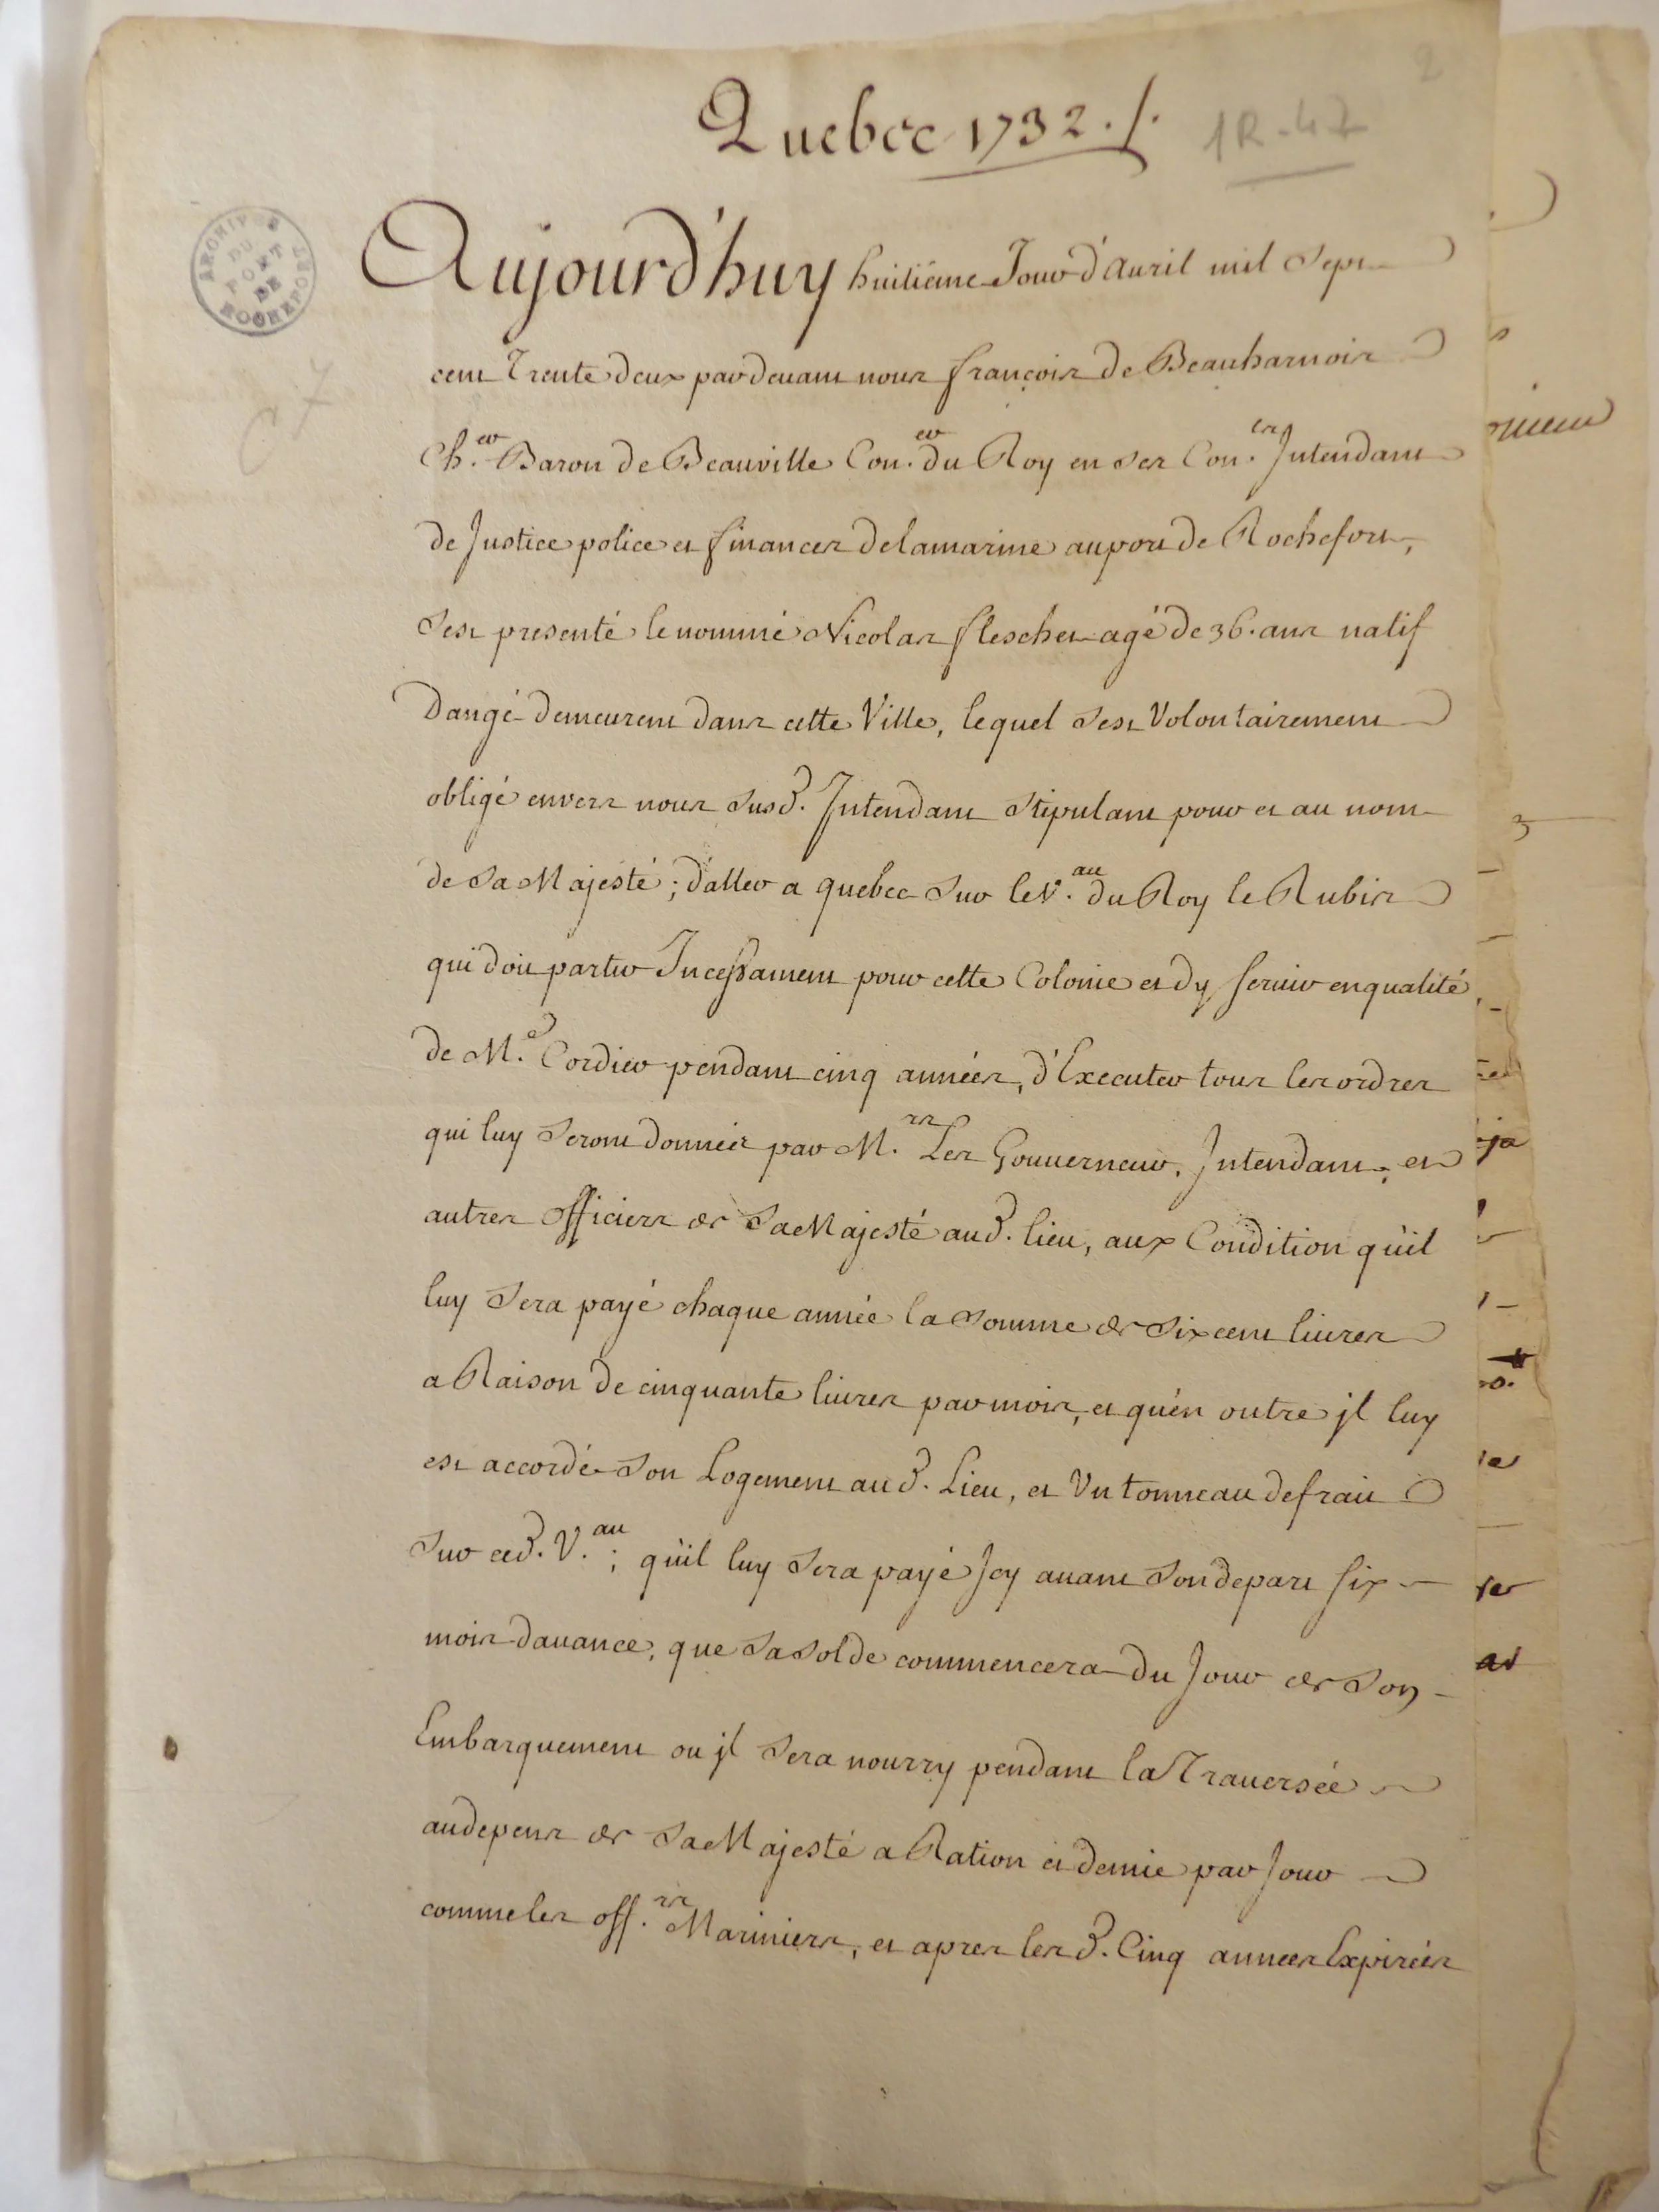 2
Quebec 1732 ./.
1R-47
ARCHIVES DU PORT DE ROCHEFORT
Aujourd'huy huitiéme Jour d'auril mil Sept
cent Trente deux par deuant nous françois de Beauharnois
Ch.er Baron de Beauville Con.er du Roy en Ses Con.es Intendant
de Justice police et finances de la marine au port de Rochefort,
Sest presenté le nommé Nicolas flescher agé de 36. ans natif
Dangé demeurent dans cette Ville, lequel Sest Volontairement
obligé envers nous Susd. Intendant Stipulant pour et au nom
de Sa Majesté ; d'aller a quebec Sur le V.au du Roy le Rubis
qui doit partir Incessament pour cette Colonie et dy seruir en qualité
de M.e Cordier pendant cinq années, d'Executer tous les ordres
qui luy Seront donnéés par M.rs Les Gouuerneur, Intendant, et
autres officiers de Sa Majesté aud. lieu, aux Condition qu'il
luy Sera payé chaque année la Somme de Six cent liures
a Raison de cinquante liures par mois, et qu'en outre jl luy
est accordé Son Logement aud. Lieu, et Un tonneau de frait
Sur ced. V.au ; qu'il luy Sera payé Jcy auant Son depart six
mois dauance, que Sa Solde commencera du Jour de Son
Embarquement ou jl Sera nourry pendant la Trauersée
au depens de Sa Majesté a Ration et demie par Jour
comme les off.rs Mariniers, et apres les d. Cinq années Expiréés